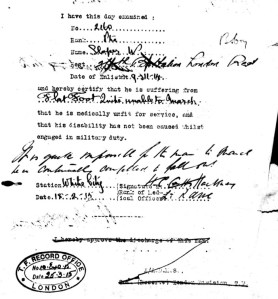 I have this day examined :
No. 2160
Rank Pte
Name Sloper W.
Corps Battalion London Regt
Date of Enlistmt 9.11.14
and hereby certify that he is suffering from
Flat Foot quite unable to march
that he is medically unfit for service, and
that his disability has not been caused whilst
engaged in military duty.
It is quite impossible for the man to march
he is continually compelled to fall out
Station White City Signature of
Rank of Med-
Date. 15.2.15 ical Officer
I hereby approve the discharge of this man
T.F. RECORD OFFICE
Date 25.3.15
LONDON